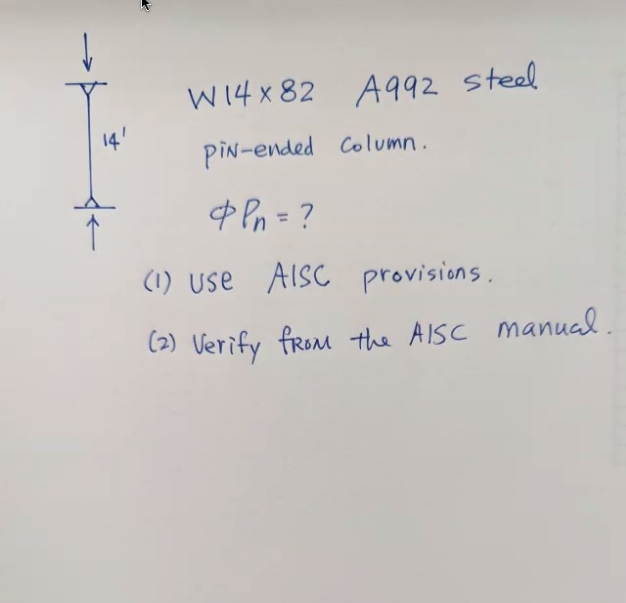 W14x82 A992 steel
14'
PIN-ended Column.
ΦPn = ?
(1) USE AISC provisions.
(2) Verify FROM the AISC manual.